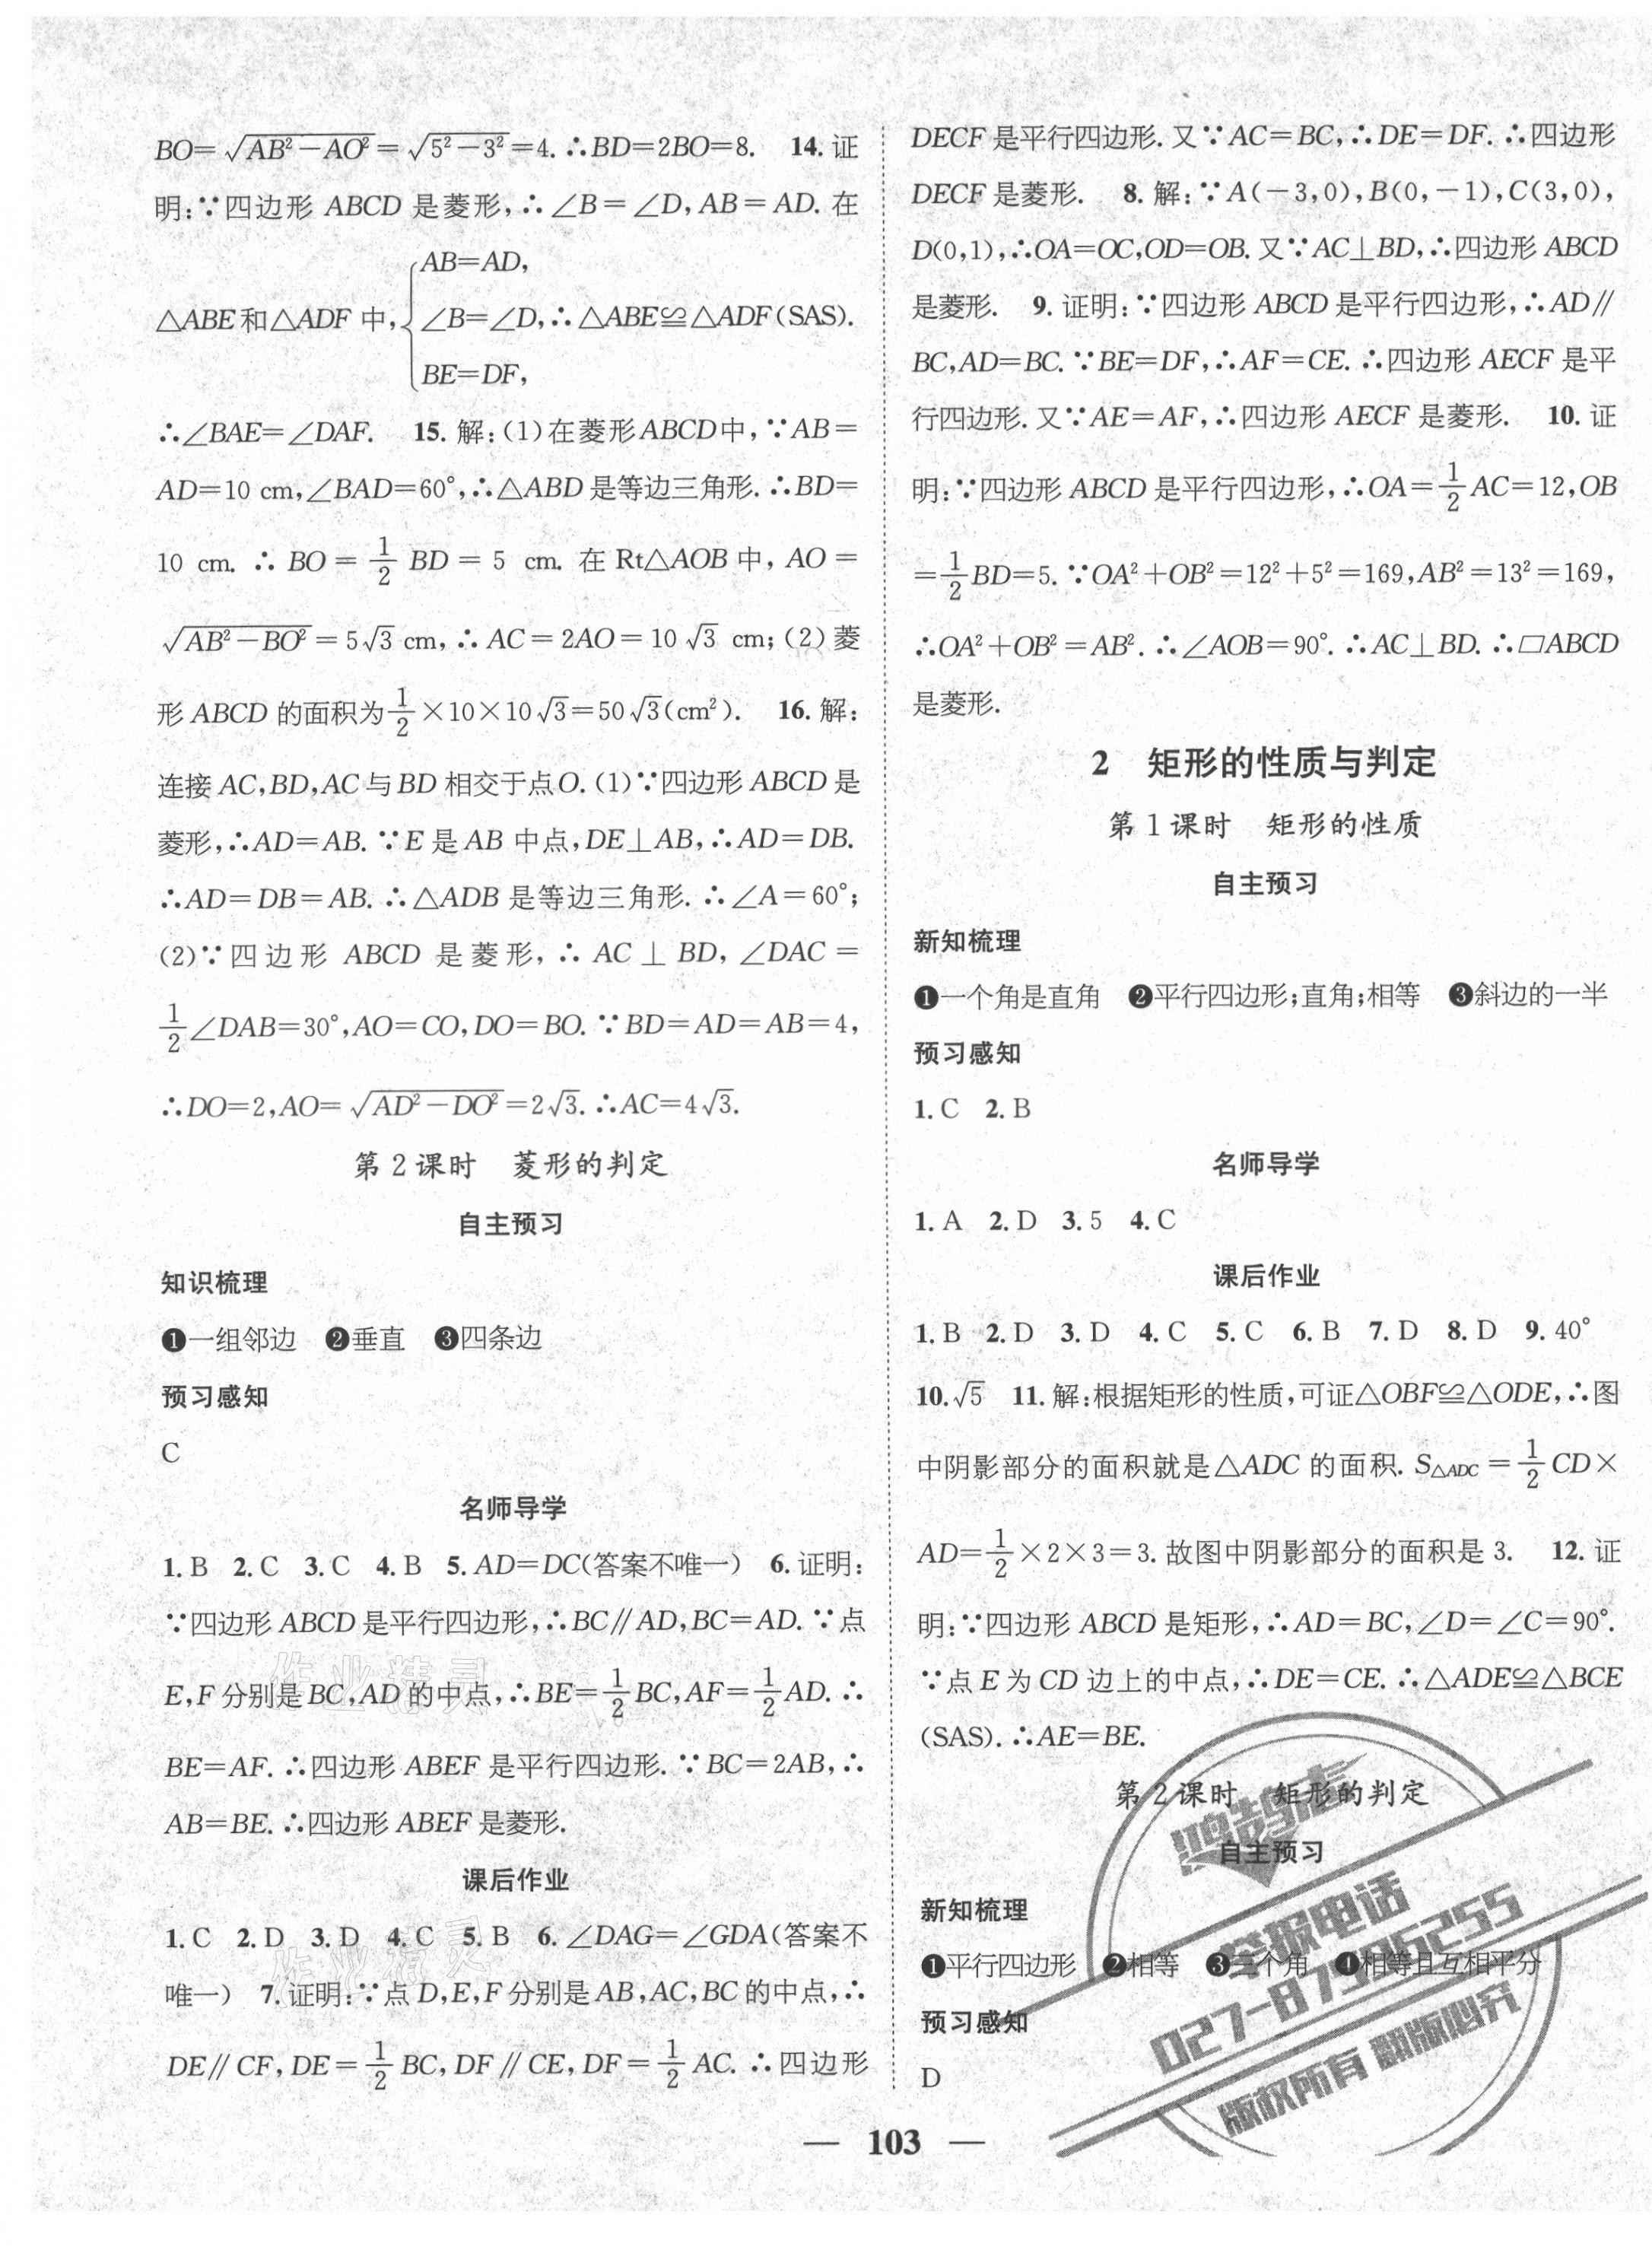 BO=√(AB²-AO²)=√(5²-3²)=4.∴BD=2BO=8. 14.证
明:∵四边形 ABCD 是菱形,∴∠B=∠D,AB=AD.在
AB=AD,
△ABE和△ADF 中,{∠B=∠D,∴△ABE≌△ADF(SAS).
BE=DF,
∴∠BAE=∠DAF. 15.解:(1)在菱形ABCD中,∵AB=
AD=10 cm,∠BAD=60°,∴△ABD是等边三角形.∴BD=
10 cm.∴BO=1/2 BD=5 cm.在Rt△AOB中,AO=
√(AB²-BO²)=5√3 cm,∴AC=2AO=10√3 cm;(2)菱
形ABCD的面积为1/2×10×10√3=50√3(cm²). 16.解:
连接AC,BD,AC与BD相交于点O.(1)∵四边形ABCD是
菱形,∴AD=AB.∵E是AB中点,DE⊥AB,∴AD=DB.
∴AD=DB=AB.∴△ADB是等边三角形.∴∠A=60°;
(2)∵四边形 ABCD 是菱形,∴AC⊥BD,∠DAC=
1/2∠DAB=30°,AO=CO,DO=BO.∵BD=AD=AB=4,
∴DO=2,AO=√(AD²-DO²)=2√3.∴AC=4√3.
第2课时 菱形的判定
自主预习
知识梳理
❶一组邻边 ❷垂直 ❸四条边
预习感知
C
名师导学
1.B 2.C 3.C 4.B 5.AD=DC(答案不唯一) 6.证明:
∵四边形ABCD是平行四边形,∴BC∥AD,BC=AD.∵点
E,F分别是BC,AD的中点,∴BE=1/2BC,AF=1/2AD.∴
BE=AF.∴四边形ABEF是平行四边形.∵BC=2AB,∴
AB=BE.∴四边形ABEF是菱形.
课后作业
1.C 2.D 3.D 4.C 5.B 6.∠DAG=∠GDA(答案不
唯一) 7.证明:∵点D,E,F分别是AB,AC,BC的中点,∴
DE∥CF,DE=1/2 BC,DF∥CE,DF=1/2 AC.∴四边形
DECF是平行四边形.又∵AC=BC,∴DE=DF.∴四边形
DECF是菱形. 8.解:∵A(-3,0),B(0,-1),C(3,0),
D(0,1),∴OA=OC,OD=OB.又∵AC⊥BD,∴四边形ABCD
是菱形. 9.证明:∵四边形ABCD是平行四边形,∴AD∥
BC,AD=BC.∵BE=DF,∴AF=CE.∴四边形AECF是平
行四边形.又∵AE=AF,∴四边形AECF是菱形. 10.证
明:∵四边形ABCD是平行四边形,∴OA=1/2AC=12,OB
=1/2BD=5.∵OA²+OB²=12²+5²=169,AB²=13²=169,
∴OA²+OB²=AB².∴∠AOB=90°.∴AC⊥BD.∴▱ABCD
是菱形.
2 矩形的性质与判定
第1课时 矩形的性质
自主预习
新知梳理
❶一个角是直角 ❷平行四边形;直角;相等 ❸斜边的一半
预习感知
1.C 2.B
名师导学
1.A 2.D 3.5 4.C
课后作业
1.B 2.D 3.D 4.C 5.C 6.B 7.D 8.D 9.40°
10.√5 11.解:根据矩形的性质,可证△OBF≌△ODE,∴图
中阴影部分的面积就是△ADC的面积.S△ADC=1/2CD×
AD=1/2×2×3=3.故图中阴影部分的面积是3. 12.证
明:∵四边形ABCD是矩形,∴AD=BC,∠D=∠C=90°.
∵点E为CD边上的中点,∴DE=CE.∴△ADE≌△BCE
(SAS).∴AE=BE.
第2课时 矩形的判定
自主预习
新知梳理
❶平行四边形 ❷相等 ❸三个角 ❹相等且互相平分
预习感知
D
鸿鹄志
举报电话
版权所有 翻版必究
作业精灵
作业精灵
— 103 —